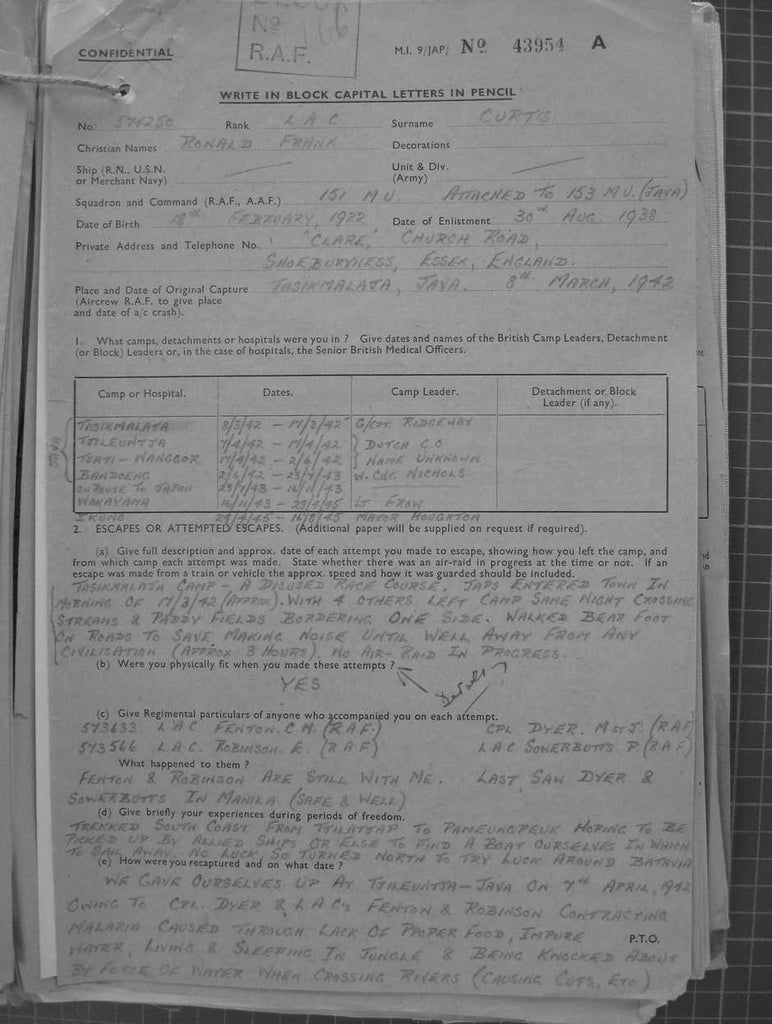 No
R.A.F.
CONFIDENTIAL
M.I. 9/JAP/ No 43954 A
WRITE IN BLOCK CAPITAL LETTERS IN PENCIL
No. 574250 Rank L A C Surname CURTIS
Christian Names RONALD FRANK Decorations
Ship (R.N., U.S.N. or Merchant Navy)
Unit & Div. (Army)
Squadron and Command (R.A.F., A.A.F.) 151 M U. ATTACHED TO 153 M U. (JAVA)
Date of Birth 18TH FEBRUARY, 1922 Date of Enlistment 30TH AUG 1938
Private Address and Telephone No. "CLARE," CHURCH ROAD,
SHOEBURYNESS, ESSEX, ENGLAND.
Place and Date of Original Capture TASIKMALATA, JAVA. 8TH MARCH, 1942
(Aircrew R.A.F. to give place
and date of a/c crash).
1. What camps, detachments or hospitals were you in ? Give dates and names of the British Camp Leaders, Detachment
(or Block) Leaders or, in the case of hospitals, the Senior British Medical Officers.
Camp or Hospital. Dates. Camp Leader. Detachment or Block Leader (if any).
TASIKMALATA 8/3/42 – 17/3/42 G/CPT RIDGEWAY
7/4/42 – 17/4/42 } DUTCH C.O
17/4/42 – 2/6/42 } NAME UNKNOWN
BANDOENG 2/6/42 – 23/9/43 W. CDR. NICHOLS
EN ROUTE TO JAPAN – 16/11/43
WAKAYAMA 16/11/43 – LT FROW
IKUNO – 16/8/45 MAJOR HOUGHTON
2. ESCAPES OR ATTEMPTED ESCAPES. (Additional paper will be supplied on request if required).
(a) Give full description and approx. date of each attempt you made to escape, showing how you left the camp, and
from which camp each attempt was made. State whether there was an air-raid in progress at the time or not. If an
escape was made from a train or vehicle the approx. speed and how it was guarded should be included.
TASIKMALATA CAMP – A DISUSED RACE COURSE. JAPS ENTERED TOWN IN
MORNING OF 17/3/42 (APPROX). WITH 4 OTHERS LEFT CAMP SAME NIGHT CROSSING
STREAMS & PADDY FIELDS BORDERING ONE SIDE. WALKED BEAR FOOT
ON ROADS TO SAVE MAKING NOISE UNTIL WELL AWAY FROM ANY
CIVILISATION (APPROX 3 HOURS). NO AIR-RAID IN PROGRESS.
(b) Were you physically fit when you made these attempts ?
YES
Details ?
(c) Give Regimental particulars of anyone who accompanied you on each attempt.
573633 L A C FENTON. C. M. (R A F.) CPL DYER. M ST J. (R A F)
573566 L A C. ROBINSON. E. (R A F) L A C SOWERBUTTS P (R A F)
What happened to them ?
FENTON & ROBINSON ARE STILL WITH ME. LAST SAW DYER &
SOWERBUTTS IN MANILA (SAFE & WELL)
(d) Give briefly your experiences during periods of freedom.
TREKKED SOUTH COAST FROM TJILATJAP TO PAMEUNGPEUK HOPING TO BE
PICKED UP BY ALLIED SHIPS OR ELSE TO FIND A BOAT OURSELVES IN WHICH
TO SAIL AWAY. NO LUCK SO TURNED NORTH TO TRY LUCK AROUND BATAVIA
(e) How were you recaptured and on what date ?
WE GAVE OURSELVES UP AT TJILEUNTJA – JAVA ON 7TH APRIL, 1942
OWING TO CPL. DYER & L A C'S FENTON & ROBINSON CONTRACTING
MALARIA CAUSED THROUGH LACK OF PROPER FOOD, IMPURE
WATER, LIVING & SLEEPING IN JUNGLE & BEING KNOCKED ABOUT
BY FORCE OF WATER WHEN CROSSING RIVERS (CAUSING CUTS, ETC)
P.T.O.